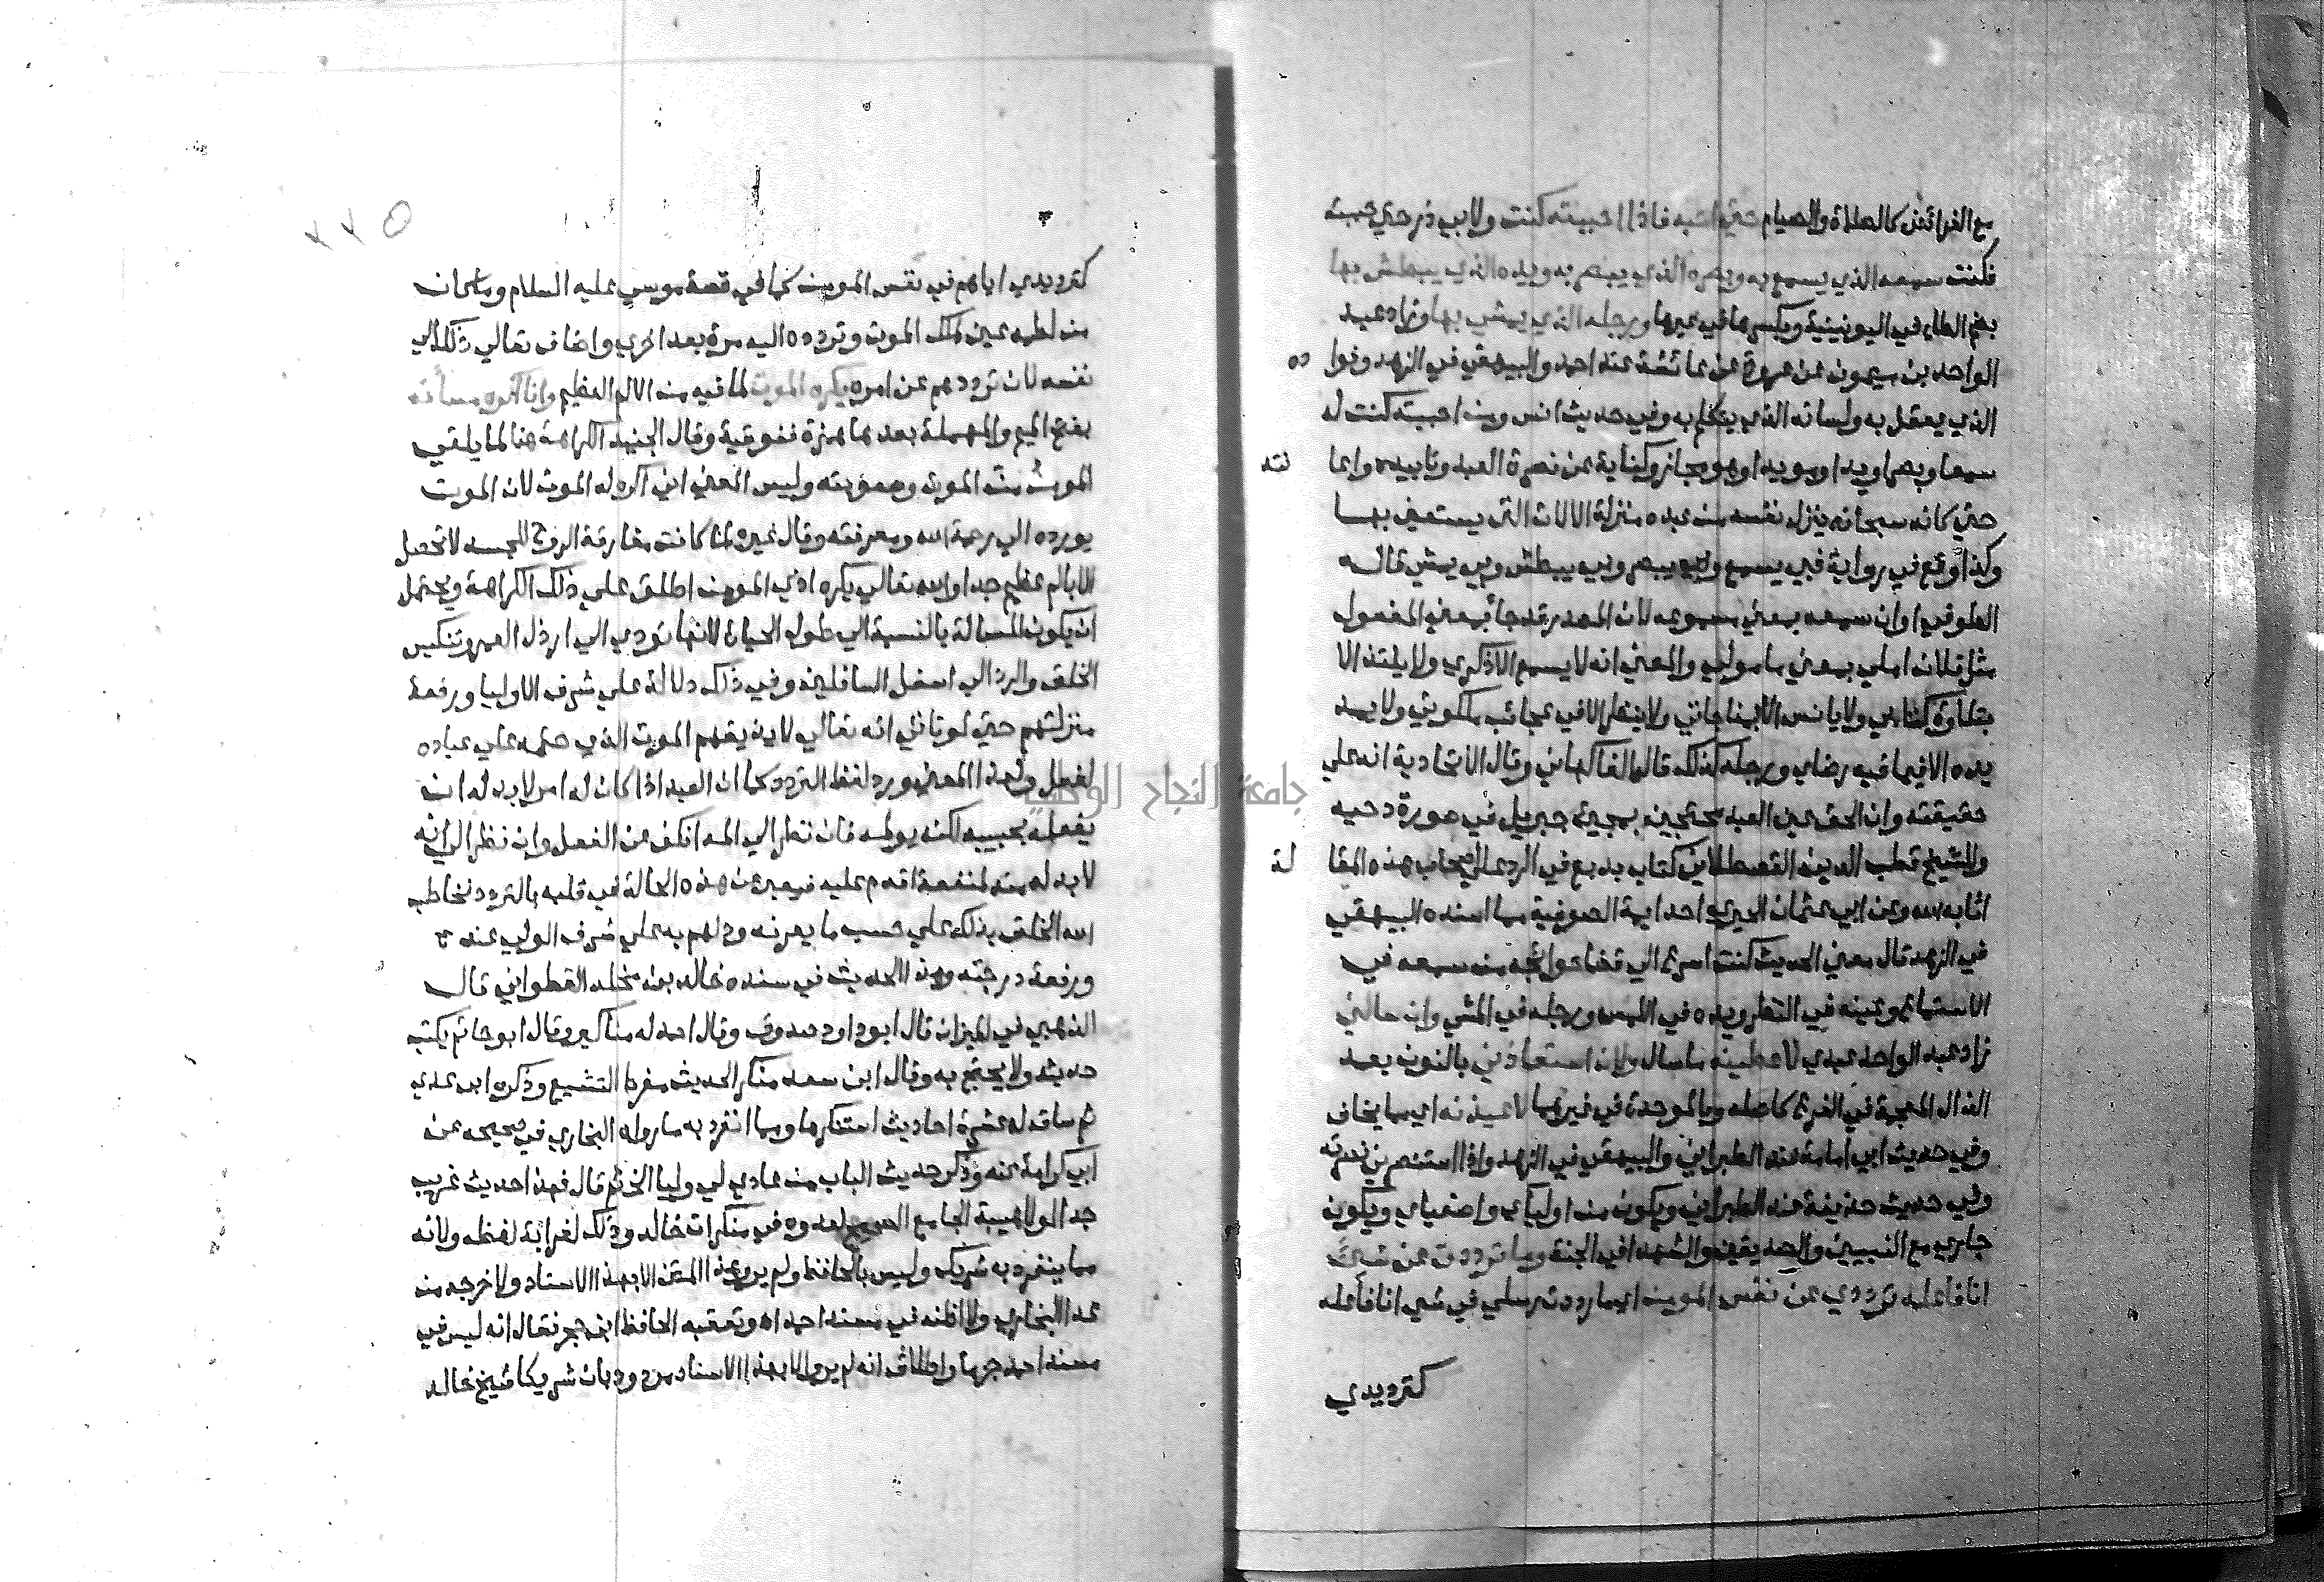 مع الفرائض كالصلاة والصيام حتي احبه فاذا احببته كنت ولابي ذر حتي حببته
فكنت سمعه الذي يسمع به وبصره الذي يبصر به ويده الذي يبطش بها
بفتح الطاء في اليونينية وبكسرها في غيرها ورجله الذي يمشي بها وزاد عبد
الواحد بن ميمون عن عروة عن عائشة عند احمد والبيهقي في الزهد وفوا ده
الذي يعقل به ولسانه الذي يتكلم به وفي حديث انس ومن احببته كنت له
سمعا وبصرا ويدا ومويدا وهو مجاز وكناية عن نصرة العبد وتاييده واعا نته
حتي كانه سبحانه ينزل نفسه من عبده منزلة الالات التي يستعين بها
وكذا وقع في رواية فبي يسمع وبي يبصر وبي يبطش وبي يمشي قاله
الطوفي او ان سمعه بمعني مسموعه لان المصدر قد جا بمعني المفعول
مثل فلان املي بمعني مامولي والمعني انه لا يسمع الا ذكري ولا يلتذ الا
بتلاوة كتابي ولا يانس الا بمناجاتي ولا ينظر الا في عجائب ملكوتي ولا يمد
يده الا فيما فيه رضاي ورجله كذلك قاله الفاكهاني وقال الاتحادية انه علي
حقيقته وان الحق عين العبد محتجين بمجيء جبريل في صورة دحيه
وللشيخ قطب الدين القسطلاني كتاب بديع في الرد علي اصحاب هذه المقا لة
اثابه الله وعن ابي عثمان الحيري احد ايمة الصوفية مما اسنده البيهقي
في الزهد قال معني الحديث كنت اسرع الي قضا حوائجه من سمعه في
الاستماع وعينه في النظر ويده في اللمس ورجله في المشي وان سالني
زاد عبد الواحد عبدي لاعطينه ما سال ولان استعاذني بالنون بعد
الذال المعجمة في الفرع كاصله وبالموحدة في غيرهما لاعيذنه اي مما يخاف
وفي حديث ابي امامة عند الطبراني والبيهقي في الزهد واذا استنصرني نصرته
وفي حديث حذيفة عند الطبراني ويكون من اوليائي واصفيائي ويكون
جاري مع النبيين والصديقين والشهدا في الجنة وما ترددت عن شيء
انا فاعله ترددي عن نفس المومن اي ما رددت رسلي في شي انا فاعله
كترديدي
٢٢٥
كترديدي اياهم في نفس المومن كما في قصة موسي عليه السلام وما كان
من لطمه عين ملك الموت وتردده اليه مرة بعد اخري واضاف تعالي ذلك الي
نفسه لان ترددهم عن امره يكره الموت لما فيه من الالم العظيم وانا اكره مسأته
بفتح الميم والمهملة بعدها همزة ففوقية وقال الجنيد الكراهة هنا لما يلقي
المومن من الموت وصعوبته وليس المعني اني اكره له الموت لان الموت
يورده الي رحمة الله ومغفرته وقال غيره لما كانت مفارقة الروح للجسد لا تحصل
الا بالم عظيم جدا والله تعالي يكره اذي المومن اطلق علي ذلك الكراهة ويحتمل
ان يكون المساة بالنسبة الي طول الحياة لانها تودي الي ارذل العمر وتنكيس
الخلق والرد الي اسفل السافلين وفي ذلك دلالة علي شرف الاوليا ورفعة
منزلتهم حتي لو تاتي انه تعالي لا يذيقهم الموت الذي حتمه علي عباده
لفعل ولهذا المعني ورد لفظ التردد كما ان العبد اذا كان له امر لا بد له ان
يفعله بحبيبه لكنه يولمه فان نظر الي المه انكف عن الفعل وان نظر الي انه
لا بد له منه لمنفعة اقدم عليه فيعبر عن هذه الحالة في قلبه بالتردد فخاطب
الله الخلق بذلك علي حسب ما يعرفه ودلهم به علي شرف الولي عنده
ورفعة درجته وهذا الحديث في سنده خالد بن مخلد القطواني قال
الذهبي في الميزان قال ابو داود صدوق وقال احمد له مناكير وقال ابو حاتم يكتب
حديثه ولا يحتج به وقال ابن سعد منكر الحديث مفرط التشيع وذكره ابن عدي
ثم ساق له عشرة احاديث استنكرها ومما انفرد به ما رواه البخاري في صحيحه عن
ابن كرامة عنه وذكر حديث الباب من عادي لي وليا الخ ثم قال فهذا حديث غريب
جدا لولا هيبة الجامع الصحيح لعدوه في منكرات خالد وذلك لغرابة لفظه ولانه
مما ينفرد به شريك وليس بالحافظ ولم يرو هذا المتن الا بهذا الاسناد ولا خرجه من
عدا البخاري ولا اظنه في مسند احمد اه وتعقبه الحافظ ابن حجر فقال انه ليس في
مسند احمد جزما واطلاق انه لم يرو الا بهذا الاسناد مردود بان شريكا شيخ خالد
جامعة النجاح الوطنية